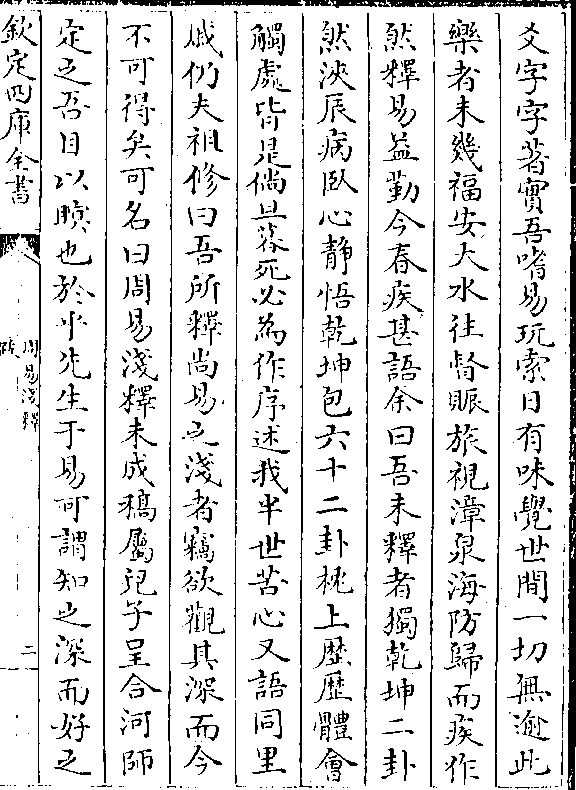 爻字字著實吾嗜易玩索日有味覺世間一切無逾此
樂者未幾福安大水往督賑旅視漳泉海防歸而疾作
然釋易益勤今春疾甚語余曰吾未釋者獨乾坤二卦
然浹辰病臥心静悟乾坤包六十二卦枕上歴歴體會
觸處皆是倘旦暮死必為作序述我半世苦心又語同里
戚仍夫祖修曰吾所釋尚易之淺者竊欲觀其深而今
不可得矣可名曰周易淺釋未成稿屬兒子呈合河師
定之吾目以瞑也於乎先生于易可謂知之深而好之
欽定四庫全書
周易淺釋
跋
二